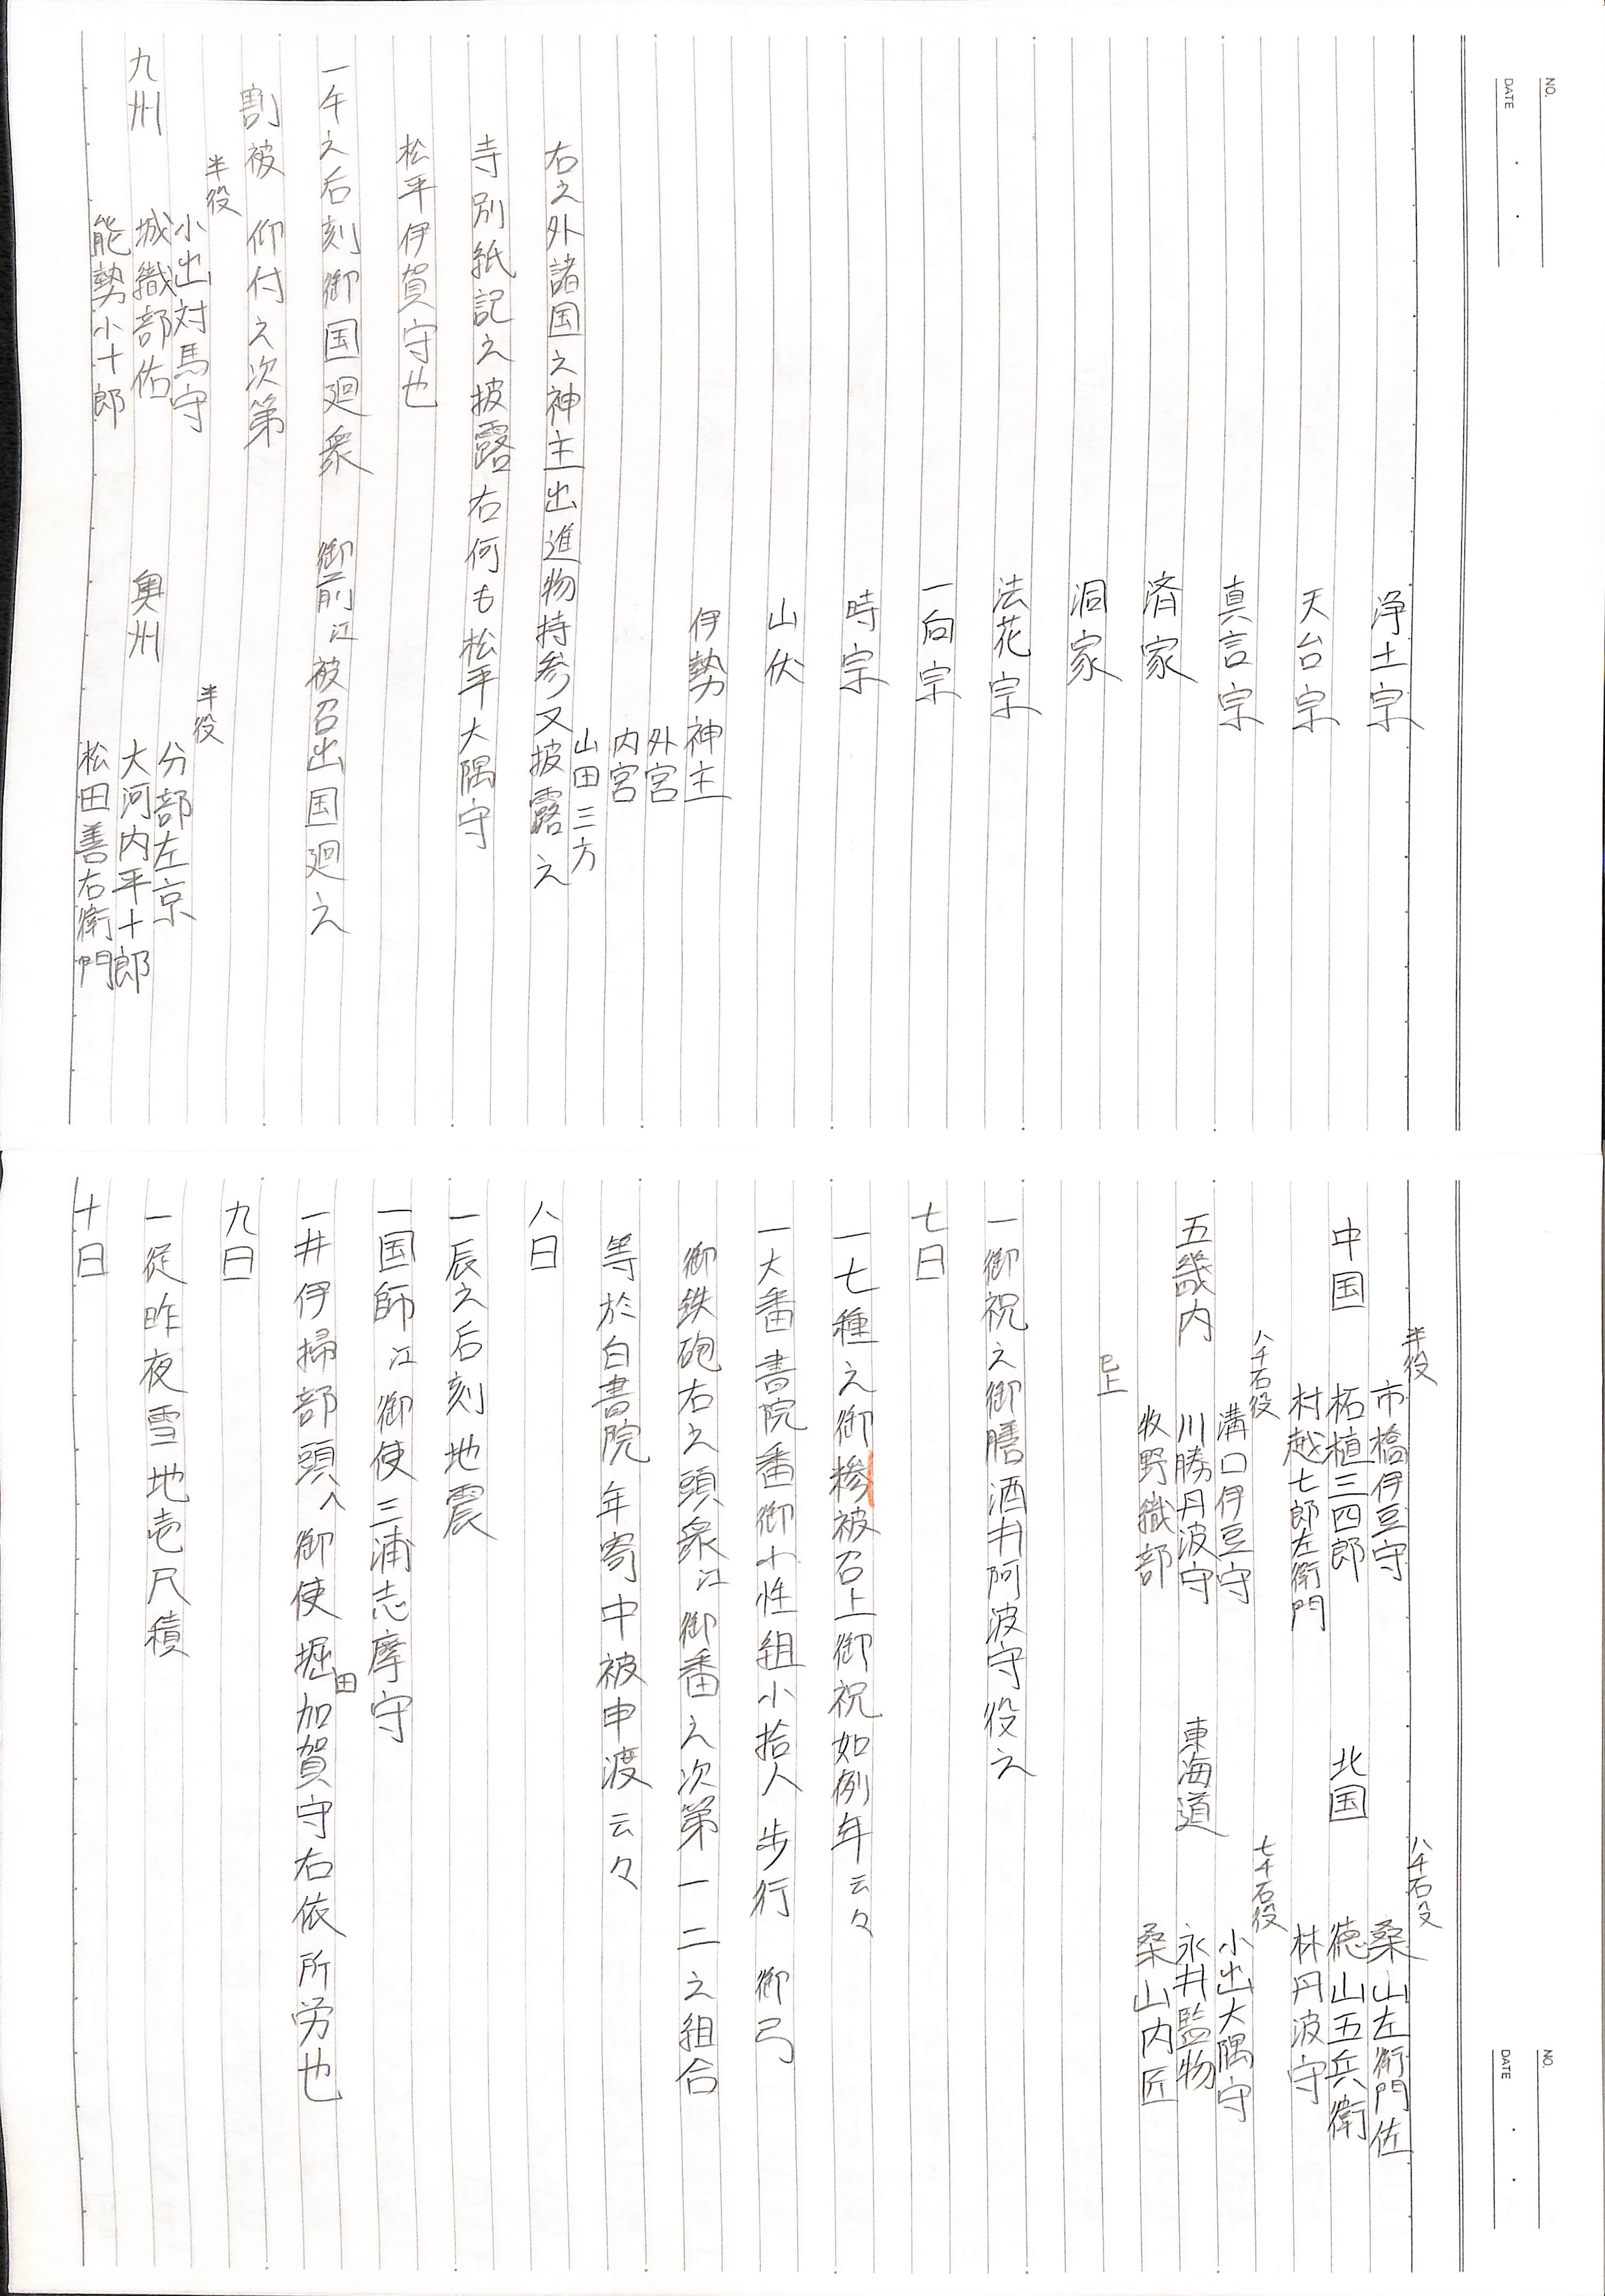 NO.
DATE
浄土宗
天台宗
真言宗
済家
洞家
法花宗
一向宗
時宗
山伏
伊勢神主
外宮
内宮
山田三方
右之外諸国之神主出進物持参又披露之
寺別紙記之披露右何も松平大隅守
松平伊賀守也
一午之后刻御国廻衆 御前江被召出国廻之
割被 仰付之次第
半役
小出対馬守
九州 城織部佑
能勢小十郎
半役
分部左京
奥州 大河内平十郎
松田善右衛門
NO.
DATE
半役
市橋伊豆守
中国 柘植三四郎
村越七郎左衛門
八千石役
桑山左衛門佐
北国 徳山五兵衛
林丹波守
八千石役
溝口伊豆守
五畿内 川勝丹波守
牧野織部
七千石役
小出大隅守
東海道 永井監物
桑山内匠
已上
一御祝之御膳酒井阿波守役之
七日
一七種之御糝被召上御祝如例年云々
一大番書院番御小性組小拾人歩行 御弓
御鉄砲右之頭衆江御番之次第一二之組合
等於白書院年寄中被申渡云々
八日
一辰之后刻地震
一国師江御使三浦志摩守
一井伊掃部頭へ御使堀田加賀守右依所労也
九日
一従昨夜雪地壱尺積
十日